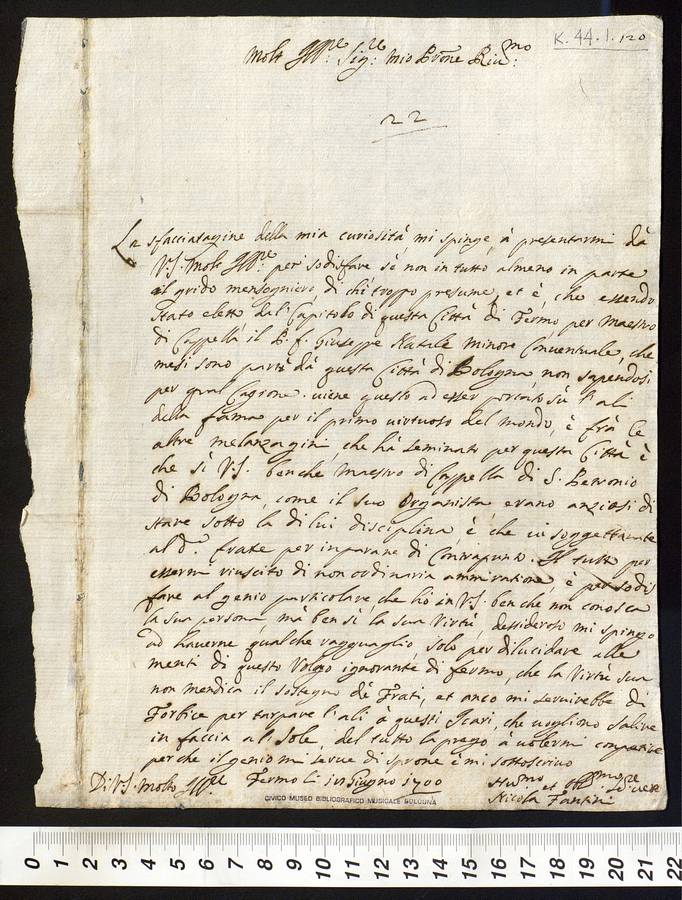 K. 44. I. 120
Molt Ill.re Sig.re mio Prõne Riv.mo
22
La sfacciatagine della mia curiosità mi spinge, à presentarmi dà
V.S. Molt Ill.re per sodisfare sè non in tutto almeno in parte
al grido mensogniero, di chi troppo presume, et è, che essendo
stato eletto dal Capitolo di questa Città di Fermo per Maestro
di Cappella il P. f. Giuseppe Natale Minore Conventuale, che
mesi sono partì dà questa Città di Bologna, non sapendosi
per qual Cagione viene questo ad esser portato sù l'ali
della fama per il primo virtuoso del mondo, è frà le
altre melanzagini, che hà seminato per questa Città è
che sì V.S. benche Maestro di Cappella di S. Petronio
di Bologna, come il suo Organista, erano anziosi di
stare sotto la di lui disciplina, è che vi soggettavate
al d.o frate per inparare di Contrapunto. Il tutto per
essermi riuscito di non ordinaria ammiratione, è per sodis
fare al genio particolare, che hò in V.S. ben che non conosca
la sua persona, mà ben sì la sua Virtù, dessideroso mi spingo
ad haverne qualche ragguaglio, solo per dilucidare alle
menti di questo Volgo ignorante di fermo, che la Virtù sua
non mendica il sostegno dè Frati, et anco mi servirebbe di
Forbice per tarpare l'ali à questi Icari, che vogliono salire
in faccia al Sole, del tutto la prego à volermi compatire
perche il genio mi serve di sprone è mi sottoscrivo
Di V.S. Molto Ill.re Fermo li Giugno 1700
et
Nicola Fantini
CIVICO MUSEO BIBLIOGRAFICO MUSICALE BOLOGNA
0 1 2 3 4 5 6 7 8 9 10 11 12 13 14 15 16 17 18 19 20 21 22